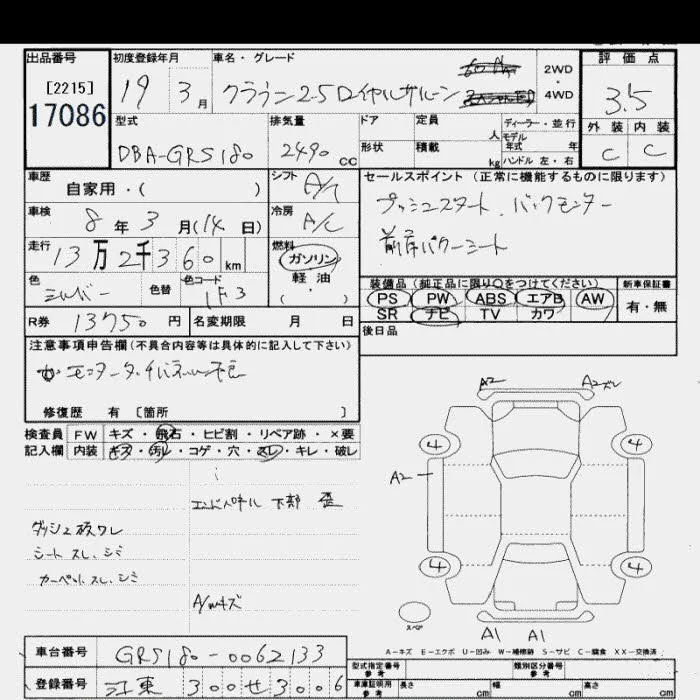 出品番号 初度登録年月 車名・グレード 評価点
[2215] 19 3月 クラウン2.5ロイヤルサルーン 2WD・4WD 3.5
17086
型式 排気量 ドア 定員 人 ディーラー・並行 外装 内装
DBA-GRS180 2490cc 形状 積載 kg モデル年式 年 ハンドル 左・右 C C
車歴 シフト A/T セールスポイント(正常に機能するものに限ります)
自家用・( ) プッシュスタート、バックモニター
車検 冷房
8年3月(14日) A/C 前席パワーシート
走行 燃料
13万2千360km ガソリン
軽油
・
( )
色 色替 色コード 装備品(純正品に限り○をつけてください) 新車保証書
シルバー 1F3 PS PW ABS エアB AW 有・無
SR ナビ TV カワ
R券 13750円 名変期限 月 日 後日品
注意事項申告欄(不具合内容等は具体的に記入して下さい)
モニター、タッチパネル不良
修復歴 有 [箇所 ]
検査員 FW キズ・飛石・ヒビ割・リペア跡・×要
記入欄 内装 キズ・汚レ・コゲ・穴・スレ・キレ・破レ
エンドパネル 下部 歪
ダッシュ板ワレ
シート スレ、シミ
カーペット スレ、シミ
A/Wキズ
A2 A2ズレ
4 4
A2
4 4
スペア
A1 A1
A-キズ E-エクボ U-凹み W-補修跡 S-サビ C-腐食 XX-交換済
車台番号 GRS180-0062133 型式指定番号 参考 類別区分番号 参考
登録番号 江東 300せ3006 車庫証明用 参考 長さ cm 幅 cm 高さ cm